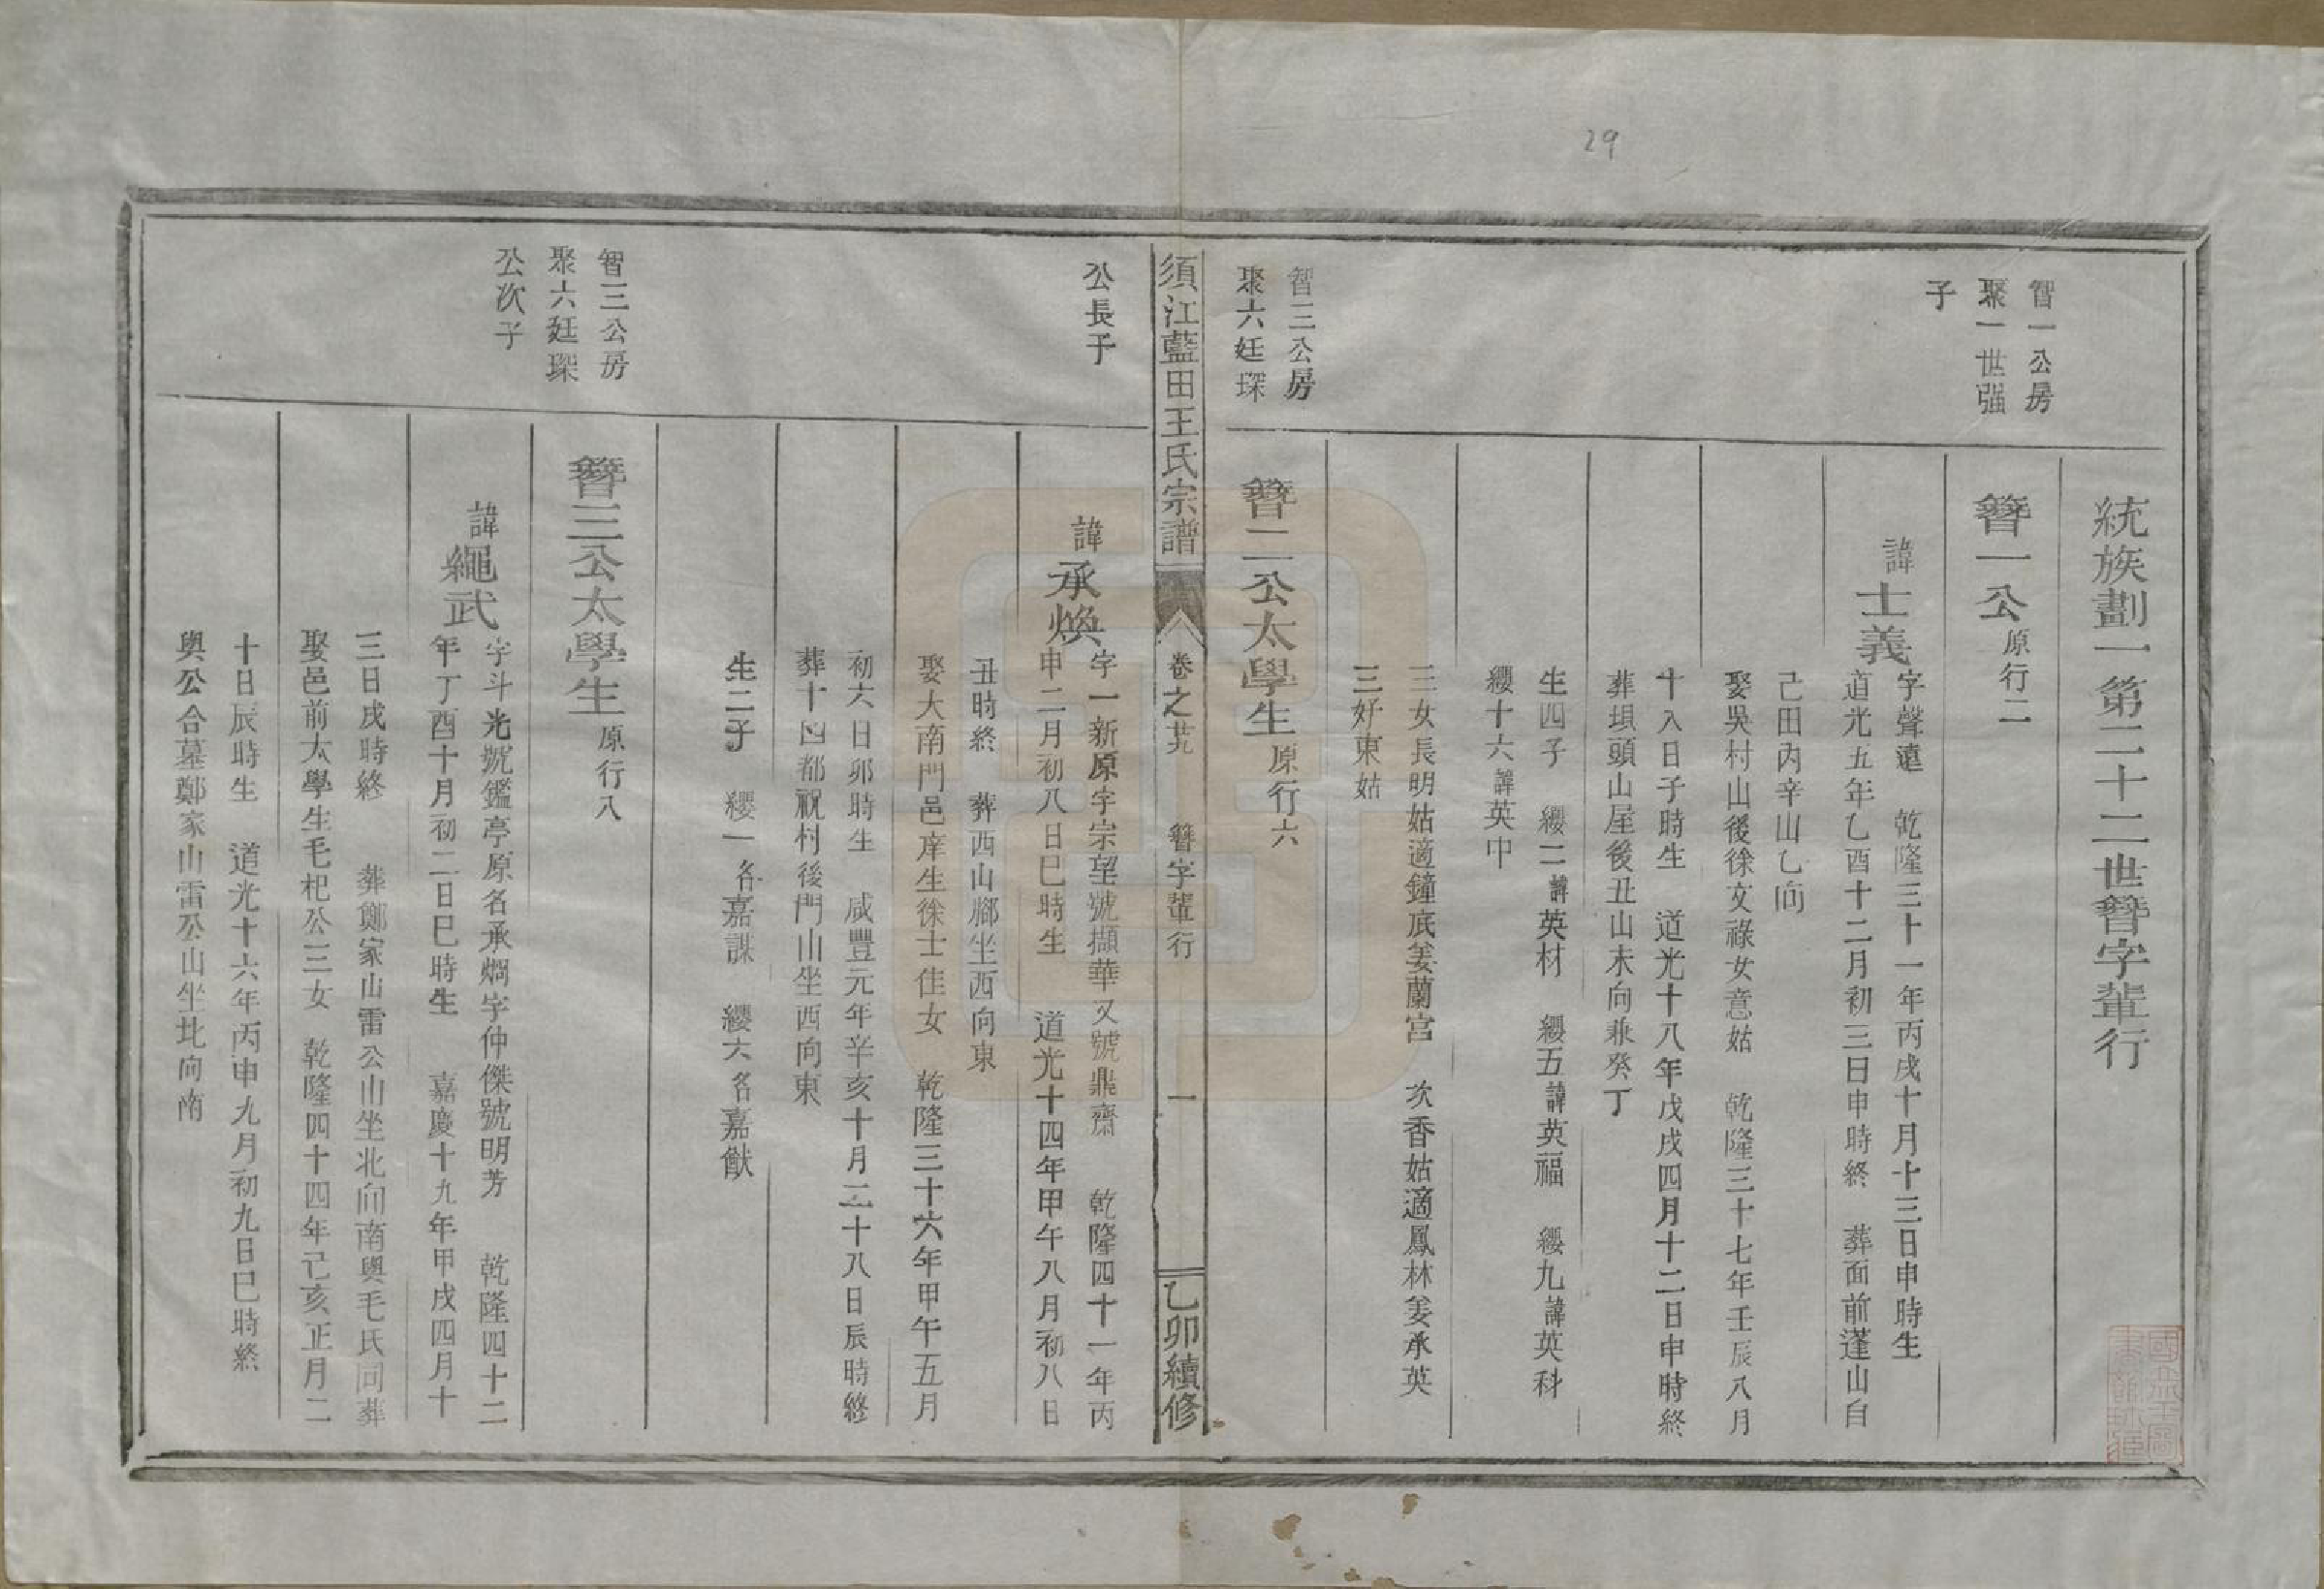 29
統族劃一第二十二世簪字輩行
智一公房
聚一世强
子
簪一公原行二
諱士義
字聲遠　乾隆三十一年丙戌十月十三日申時生
道光五年乙酉十二月初三日申時終　葬面前蓬山自
己田內辛山乙向
娶吳村山後徐文祿女意姑　乾隆三十七年壬辰八月
十八日子時生　道光十八年戊戌四月十二日申時終
葬垻頭山屋後丑山未向兼癸丁
生四子　纓二諱英材　纓五諱英福　纓九諱英科
纓十六諱英中
三女長明姑適鐘底姜蘭宮　次香姑適鳳林姜承英
三好東姑
智三公房
聚六廷琛
簪二公太學生原行六
須江藍田王氏宗譜
卷之廿九　簪字輩行
一
乙卯續修
公長子
諱承煥
字一新原字宗望號擷華又號鼎齋　乾隆四十一年丙
申二月初八日巳時生　道光十四年甲午八月初八日
丑時終　葬西山腳坐西向東
娶大南門邑庠生徐士佳女　乾隆三十六年甲午五月
初六日卯時生　咸豐元年辛亥十月二十八日辰時終
葬十四都祝村後門山坐西向東
生二子　纓一名嘉謀　纓六名嘉猷
智三公房
聚六廷琛
公次子
簪三公太學生原行八
諱繩武
字斗光號鑑亭原名承烱字仲傑號明芳　乾隆四十二
年丁酉十月初二日巳時生　嘉慶十九年甲戌四月十
三日戌時終　葬鄭家山雷公山坐北向南與毛氏同葬
娶邑前太學生毛杞公三女　乾隆四十四年己亥正月二
十日辰時生　道光十六年丙申九月初九日巳時終
與公合墓鄭家山雷公山坐北向南